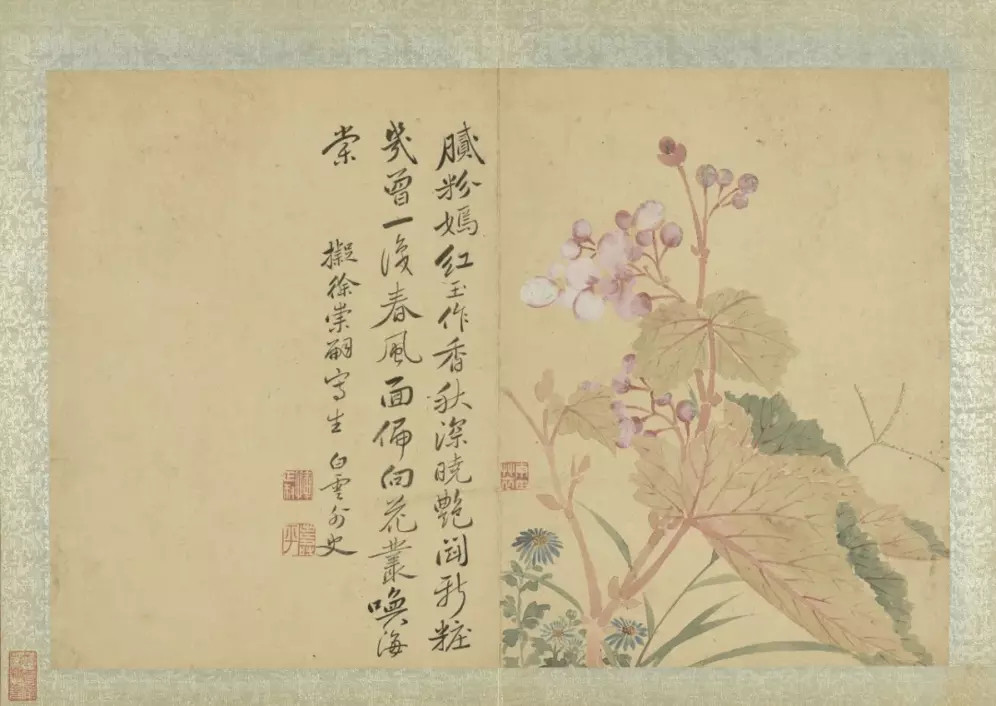 膩粉嫣紅玉作香秋深曉艷鬥新粧
幾曾一春風面偏向花叢喚海
棠
擬徐崇嗣寫生 白雲外史
壽平